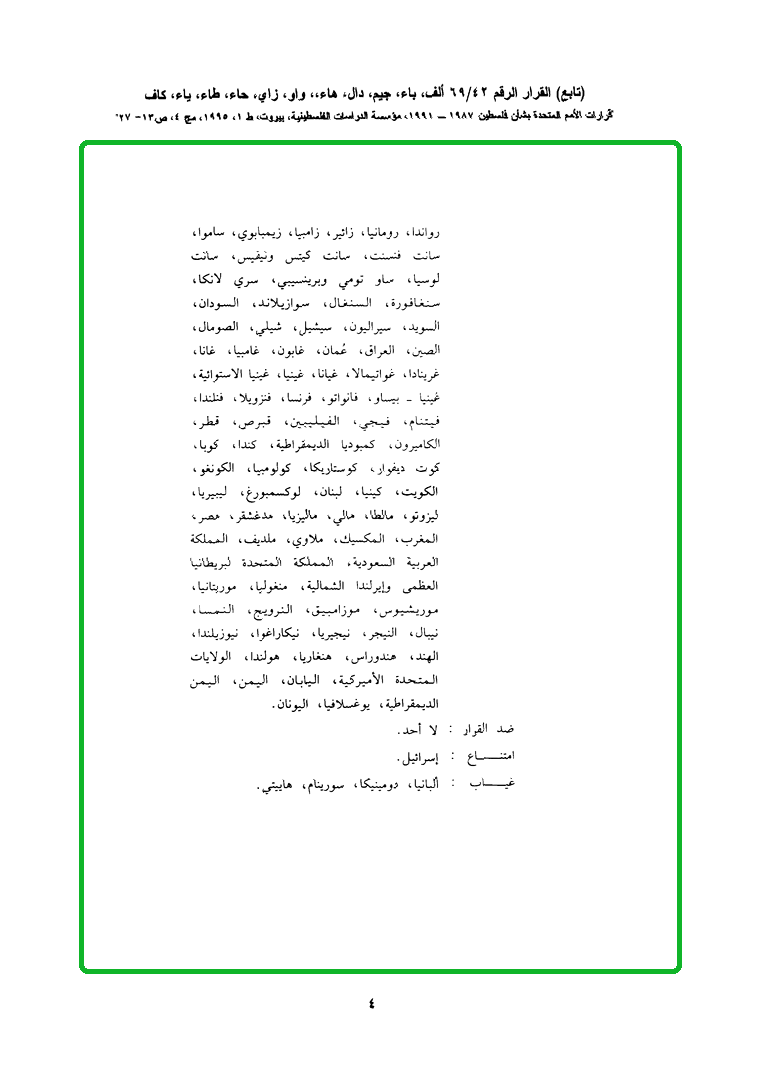 (تابع) القرار الرقم ٦٩/٤٢ ألف، باء، جيم، دال، هاء،، واو، زاي، حاء، طاء، ياء، كاف
قرارات الأمم المتحدة بشأن فلسطين ١٩٨٧ ــ ١٩٩١، مؤسسة الدراسات الفلسطينية، بيروت، ط ١، ١٩٩٥، مج ٤، ص١٣- ٢٧
رواندا، رومانيا، زائير، زامبيا، زيمبابوي، ساموا،
سانت فنسنت، سانت كيتس ونيفيس، سانت
لوسيا، ساو تومي وبرينسيبي، سري لانكا،
سنغافورة، السنغال، سوازيلاند، السودان،
السويد، سيراليون، سيشيل، شيلي، الصومال،
الصين، العراق، عُمان، غابون، غامبيا، غانا،
غرينادا، غواتيمالا، غيانا، غينيا، غينيا الاستوائية،
غينيا ـ بيساو، فانواتو، فرنسا، فنزويلا، فنلندا،
فيتنام، فيجي، الفيليبين، قبرص، قطر،
الكاميرون، كمبوديا الديمقراطية، كندا، كوبا،
كوت ديفوار، كوستاريكا، كولومبيا، الكونغو،
الكويت، كينيا، لبنان، لوكسمبورغ، ليبيريا،
ليزوتو، مالطا، مالي، ماليزيا، مدغشقر، مصر،
المغرب، المكسيك، ملاوي، ملديف، المملكة
العربية السعودية، المملكة المتحدة لبريطانيا
العظمى وإيرلندا الشمالية، منغوليا، موريتانيا،
موريشيوس، موزامبيق، النرويج، النمسا،
نيبال، النيجر، نيجيريا، نيكاراغوا، نيوزيلندا،
الهند، هندوراس، هنغاريا، هولندا، الولايات
المتحدة الأميركية، اليابان، اليمن، اليمن
الديمقراطية، يوغسلافيا، اليونان.
ضد القرار : لا أحد.
امتنـــاع : إسرائيل.
غيـــاب : ألبانيا، دومينيكا، سورينام، هاييتي.
٤